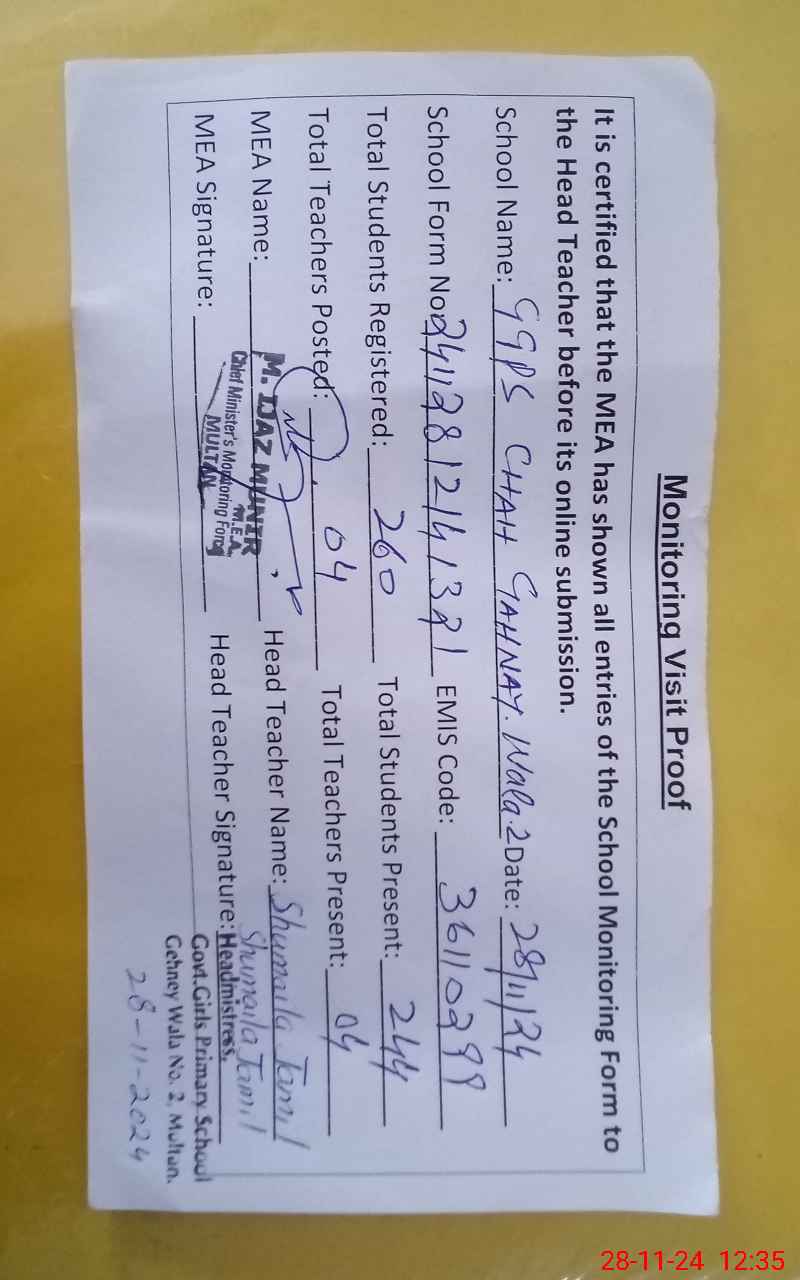 Monitoring Visit Proof
It is certified that the MEA has shown all entries of the School Monitoring Form to
the Head Teacher before its online submission.
School Name: GGPS CHAH GAHNAY. Wala.2 Date: 28/11/24
School Form No: EMIS Code:
Total Students Registered: 260 Total Students Present: 244
Total Teachers Posted: 04 Total Teachers Present: 04
MEA Name: M. IJAZ MUNIR Head Teacher Name: Shumaila Jamil
M.E.A.
Chief Minister's Monitoring Force
MULTAN
MEA Signature: Head Teacher Signature: Shumaila Jamil
Headmistress,
Govt. Girls Primary School
Gehney Wala No. 2, Multan.
28-11-2024
28-11-24 12:35